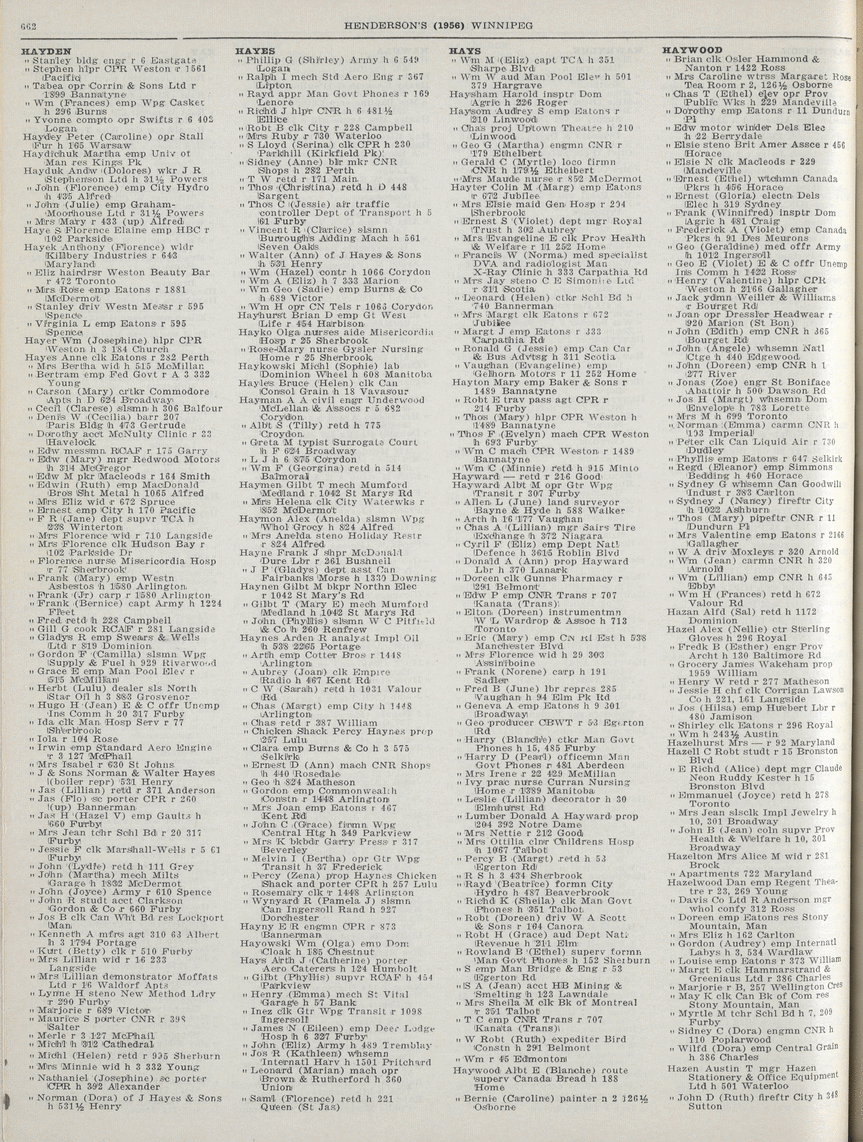 662
HENDERSON'S (1956) WINNIPEG
HAYDEN
" Stanley bldg engr r 6 Eastgate
" Stephen hlpr CPR Weston r 1561
Pacific
" Tabea opr Corrin & Sons Ltd r
1899 Bannatyne
" Wm (Frances) emp Wpg Casket
h 296 Burns
" Yvonne compto opr Swifts r 6 402
Logan
Haydey Peter (Caroline) opr Stall
Fur h 165 Warsaw
Haydichuk Martha emp Univ of
Man res Kings Pk
Hayduk Andw (Dolores) wkr J R
Stephenson Ltd h 31½ Powers
" John (Florence) emp City Hydro
h 435 Alfred
" John (Julie) emp Graham-
Moorhouse Ltd r 31½ Powers
" Mrs Mary r 433 (up) Alfred
Haye S Florence Elaine emp HBC r
102 Parkside
Hayek Anthony (Florence) wldr
Killbery Industries r 643
Maryland
" Eliz hairdrsr Weston Beauty Bar
r 472 Toronto
" Mrs Rose emp Eatons r 1881
McDermot
" Stanley driv Westn Messr r 595
Spence
" Virginia L emp Eatons r 595
Spence
Hayer Wm (Josephine) hlpr CPR
Weston h 3 184 Church
Hayes Anne clk Eatons r 282 Perth
" Mrs Bertha wid h 515 McMillan
" Bertram emp Fed Govt r A 3 332
Young
" Carson (Mary) crtkr Commodore
Apts h D 624 Broadway
" Cecil (Clarece) slsmn h 306 Balfour
" Denis W (Cecilia) barr 207
Paris Bldg h 473 Gertrude
" Dorothy acct McNulty Clinic r 33
Havelock
" Edw messmn RCAF r 175 Garry
" Edw (Mary) mgr Redwood Motors
h 314 McGregor
" Edw M pkr Macleods r 164 Smith
" Edwin (Ruth) emp MacDonald
Bros Sht Metal h 1065 Alfred
" Mrs Eliz wid r 672 Spruce
" Ernest emp City h 170 Pacific
" F R (Jane) dept supvr TCA h
238 Winterton
" Mrs Florence wid r 710 Langside
" Mrs Florence clk Hudson Bay r
102 Parkside Dr
" Florence nurse Misericordia Hosp
r 77 Sherbrook
" Frank (Mary) emp Westn
Asbestos h 1580 Arlington
" Frank (Jr) carp r 1580 Arlington
" Frank (Bernice) capt Army h 1224
Fleet
" Fred retd h 228 Campbell
" Gill G cook RCAF r 281 Langside
" Gladys R emp Swears & Wells
Ltd r 819 Dominion
" Gordon F (Camilla) slsmn Wpg
Supply & Fuel h 929 Riverwood
" Grace E emp Man Pool Elev r
515 McMillan
" Herbt (Lulu) dealer sls North
Star Oil h 3 883 Grosvenor
" Hugo H (Jean) E & C offr Unemp
Ins Comm h 20 317 Furby
" Ida clk Man Hosp Serv r 77
Sherbrook
" Iola r 104 Rose
" Irwin emp Standard Aero Engine
r 3 127 McPhail
" Mrs Isabel r 630 St Johns
" J & Sons Norman & Walter Hayes
(boiler repr) 531 Henry
" Jas (Lillian) retd r 371 Anderson
" Jas (Flo) sc porter CPR r 260
(up) Bannerman
" Jas H (Hazel V) emp Gaults h
660 Furby
" Mrs Jean tchr Schl Bd r 20 317
Furby
" Jessie P clk Marshall-Wells r 5 61
Furby
" John (Lydie) retd h 111 Grey
" John (Martha) mech Milts
Garage h 1832 McDermot
" John (Joyce) Army r 610 Spence
" John R studt acct Clarkson
Gordon & Co r 660 Furby
" Jos B clk Can Wht Bd res Lockport
Man
" Kenneth A mfrs agt 310 63 Albert
h 3 1794 Portage
" Kurt (Betty) clk r 510 Furby
" Mrs Lillian wid r 16 233
Langside
" Mrs Lillian demonstrator Moffats
Ltd r 16 Waldorf Apts
" Lynne H steno New Method Ldry
r 290 Furby
" Marjorie r 689 Victor
" Maurice S porter CNR r 398
Salter
" Merle r 3 127 McPhail
" Michl h 312 Cathedral
" Michl (Helen) retd r 935 Sherburn
" Mrs Minnie wid h 3 332 Young
" Nathaniel (Josephine) sc porter
CPR h 392 Alexander
" Norman (Dora) of J Hayes & Sons
h 531½ Henry
HAYES
" Phillip G (Shirley) Army h 6 549
Logan
" Ralph I mech Std Aero Eng r 367
Lipton
" Rayd appr Man Govt Phones r 169
Lenore
" Richd J hlpr CNR h 6 481½
Ellice
" Robt B clk City r 228 Campbell
" Mrs Ruby r 730 Waterloo
" S Lloyd (Serina) clk CPR h 230
Parkhill (Kirkfield Pk)
" Sidney (Anne) blr mkr CNR
Shops h 282 Perth
" T W retd r 171 Main
" Thos (Christina) retd h D 448
Sargent
" Thos C (Jessie) air traffic
controller Dept of Transport h 5
61 Furby
" Vincent R (Clarice) slsmn
Burroughs Adding Mach h 561
Seven Oaks
" Walter (Ann) of J Hayes & Sons
h 531 Henry
" Wm (Hazel) contr h 1066 Corydon
" Wm A (Eliz) h 7 333 Marion
" Wm Geo (Sadie) emp Burns & Co
h 689 Victor
" Wm H opr CN Tels r 1066 Corydon
Hayhurst Brian D emp Gt West
Life r 454 Harbison
Hayko Olga nurses aide Misericordia
Hosp r 25 Sherbrook
" Rose-Mary nurse Gysler Nursing
Home r 25 Sherbrook
Haykowski Michl (Sophie) lab
Dominion Wheel h 608 Manitoba
Hayles Bruce (Helen) clk Can
Consol Grain h 18 Vavasour
Hayman A A civil engr Underwood
McLellan & Assocs r 5 682
Corydon
" Albt S (Tilly) retd h 775
Croydon
" Greta M typist Surrogate Court
h F 624 Broadway
" L J h 6 875 Corydon
" Wm F (Georgina) retd h 514
Balmoral
Haymen Gilbt T mech Mumford
Medland r 1042 St Marys Rd
" Mrs Helena clk City Waterwks r
852 McDermot
Haymon Alex (Anelda) slsmn Wpg
Whol Grocy h 824 Alfred
" Mrs Anelda steno Holiday Restr
r 824 Alfred
Hayne Frank J shpr McDonald
Dure Lbr r 261 Bushnell
" J P (Gladys) dept asst Can
Fairbanks Morse h 1330 Downing
Haynen Gilbt M bkpr Northn Elec
r 1042 St Mary's Rd
" Gilbt T (Mary E) mech Mumford
Medland h 1042 St Marys Rd
" John (Phyllis) slsmn W C Pitfield
& Co h 260 Renfrew
Haynes Arden R analyst Impl Oil
h 538 2265 Portage
" Arth emp Cotter Bros r 1448
Arlington
" Aubrey (Joan) clk Empire
Radio h 467 Kent Rd
" C W (Sarah) retd h 1031 Valour
Rd
" Chas (Margt) emp City h 1448
Arlington
" Chas retd r 387 William
" Chicken Shack Percy Haynes prop
257 Lulu
" Clara emp Burns & Co h 3 575
Selkirk
" Ernest D (Ann) mach CNR Shops
h 440 Rosedale
" Geo h 824 Matheson
" Gordon emp Commonwealth
Constn r 1448 Arlington
" Mrs Joan emp Eatons r 467
Kent Rd
" John C (Grace) firmn Wpg
Central Htg h 349 Parkview
" Mrs K bkbdr Garry Press r 317
Beverley
" Melvin I (Bertha) opr Gtr Wpg
Transit r 37 Frederick
" Percy (Zena) prop Haynes Chicken
Shack and porter CPR h 257 Lulu
" Rosemary clk r 1448 Arlington
" Wynyard R (Pamela J) slsmn
Can Ingersoll Rand h 927
Dorchester
Hayny E R engmn CPR r 873
Bannerman
Hayowski Wm (Olga) emp Dom
Cloak h 185 Chestnut
Hays Arth J (Catherine) porter
Aero Caterers h 124 Humbolt
" Gilbt (Phyllis) supvr RCAF h 454
Parkview
" Henry (Emma) mech St Vital
Garage h 57 Bank
" Inez clk Gtr Wpg Transit r 1098
Ingersoll
" James N (Eileen) emp Deer Lodge
Hosp h 6 327 Furby
" John (Eliz) Army h 489 Tremblay
" Jos R (Kathleen) whsemn
Internatl Harv h 1501 Pritchard
" Leonard (Marian) mach opr
Brown & Rutherford h 360
Union
" Saml (Florence) retd h 221
Queen (St Jas)
HAYS
" Wm M (Eliz) capt TCA h 351
Sharpe Blvd
" Wm W aud Man Pool Elev h 501
379 Hargrave
Haysham Harold insptr Dom
Agric h 226 Roger
Haysom Audrey S emp Eatons r
210 Linwood
" Chas proj Uptown Theatre h 210
Linwood
" Geo G (Martha) engmn CNR r
179 Ethelbert
" Gerald C (Myrtle) loco firmn
CNR h 179½ Ethelbert
" Mrs Maude nurse r 852 McDermot
Hayter Colin M (Marg) emp Eatons
r 672 Jubilee
" Mrs Elsie maid Gen Hosp r 294
Sherbrook
" Ernest S (Violet) dept mgr Royal
Trust h 302 Aubrey
" Mrs Evangeline E clk Prov Health
& Welfare r 11 252 Home
" Francis W (Norma) med specialist
DVA and radiologist Man
X-Ray Clinic h 333 Carpathia Rd
" Mrs Jay steno C E Simonite Ltd
r 311 Scotia
" Leonard (Helen) ctkr Schl Bd h
740 Bannerman
" Mrs Margt clk Eatons r 672
Jubilee
" Margt J emp Eatons r 333
Carpathia Rd
" Ronald G (Jessie) emp Can Car
& Bus Advtsg h 311 Scotia
" Vaughan (Evangeline) emp
Gelhorn Motors r 11 252 Home
Hayton Mary emp Baker & Sons r
1489 Bannatyne
" Robt E trav pass agt CPR r
214 Furby
" Thos (Mary) hlpr CPR Weston h
1489 Bannatyne
" Thos F (Evelyn) mach CPR Weston
h 693 Furby
" Wm C mach CPR Weston r 1489
Bannatyne
" Wm C (Minnie) retd h 915 Minto
Hayward — retd r 216 Good
Hayward Albt M opr Gtr Wpg
Transit r 307 Furby
" Allen L (June) land surveyor
Bayne & Hyde h 588 Walker
" Arth h 16 177 Vaughan
" Chas A (Lillian) mgr Sairs Tire
Exchange h 372 Niagara
" Cyril F (Eliz) emp Dept Natl
Defence h 3615 Roblin Blvd
" Donald A (Ann) prop Hayward
Lbr h 370 Lanark
" Doreen clk Gunns Pharmacy r
291 Belmont
" Edw P emp CNR Trans r 707
Kanata (Trans)
" Elton (Doreen) instrumentmn
W L Wardrop & Assoc h 713
Toronto
" Eric (Mary) emp CN Rl Est h 538
Manchester Blvd
" Mrs Florence wid h 29 303
Assiniboine
" Frank (Norene) carp h 191
Sadler
" Fred B (June) lbr repres 285
Vaughan h 94 Elm Pk Rd
" Geneva A emp Eatons h 9 301
Broadway
" Geo producer CBWT r 53 Egerton
Rd
" Harry (Blanche) ctkr Man Govt
Phones h 15, 485 Furby
" Harry D (Pearl) officemn Man
Govt Phones r 481 Aberdeen
" Mrs Irene r 22 429 McMillan
" Ivy prac nurse Curran Nursing
Home r 1389 Manitoba
" Leslie (Lillian) decorator h 30
Elmhurst Rd
" Lumber Donald A Hayward prop
204 392 Notre Dame
" Mrs Nettie r 212 Good
" Mrs Ottilia clnr Childrens Hosp
h 1067 Talbot
" Percy B (Margt) retd h 53
Egerton Rd
" R S h 3 434 Sherbrook
" Rayd (Beatrice) formn City
Hydro h 487 Beaverbrook
" Richd K (Sheila) clk Man Govt
Phones h 351 Talbot
" Robt (Doreen) driv W A Scott
& Sons r 104 Canora
" Robt H (Grace) aud Dept Natl
Revenue h 211 Elm
" Rowland B (Ethel) superv formn
Man Govt Phones h 152 Sherburn
" S emp Man Bridge & Eng r 53
Egerton Rd
" S A (Jean) acct HB Mining &
Smelting h 123 Lawndale
" Mrs Sheila M clk Bk of Montreal
r 351 Talbot
" T C emp CNR Trans r 707
Kanata (Trans)
" W Robt (Ruth) expediter Bird
Constn h 291 Belmont
" Wm r 45 Edmonton
Haywood Albt E (Blanche) route
superv Canada Bread h 188
Home
" Bernie (Caroline) painter a 2 126½
Osborne
HAYWOOD
" Brian clk Osler Hammond &
Nanton r 1422 Ross
" Mrs Caroline wtrss Margaret Rose
Tea Room r 2, 126½ Osborne
" Chas T (Ethel) elev opr Prov
Public Wks h 229 Mandeville
" Dorothy emp Eatons r 11 Dundurn
Pl
" Edw motor winder Dels Elec
h 22 Berrydale
" Elsie steno Brit Amer Assce r 456
Horace
" Elsie N clk Macleods r 229
Mandeville
" Ernest (Ethel) wtchmn Canada
Pkrs h 456 Horace
" Ernest (Gloria) electn Dels
Elec h 319 Sydney
" Frank (Winnifred) insptr Dom
Agric h 481 Craig
" Frederick A (Violet) emp Canada
Pkrs h 91 Des Meurons
" Geo (Geraldine) med offr Army
h 1012 Ingersoll
" Geo E (Violet) E & C offr Unemp
Ins Comm h 1422 Ross
" Henry (Valentine) hlpr CPR
Weston h 2166 Gallagher
" Jack ydmn Weiller & Williams
r Bourget Rd
" Joan opr Dressler Headwear r
920 Marion (St Bon)
" John (Edith) emp CNR h 365
Bourget Rd
" John (Angele) whsemn Natl
Ctge h 440 Edgewood
" John (Doreen) emp CNR h 1
277 River
" Jonas (Zoe) engr St Boniface
Abattoir h 500 Dawson Rd
" Jos H (Margt) whsemn Dom
Envelope h 783 Lorette
" Mrs M h 699 Toronto
" Norman (Emma) carmn CNR h
193 Imperial
" Peter clk Can Liquid Air r 730
Dudley
" Phyllis emp Eatons r 647 Selkirk
" Regd (Eleanor) emp Simmons
Bedding h 460 Horace
" Sydney G whsemn Can Goodwill
Indust r 383 Carlton
" Sydney J (Nancy) fireftr City
h 1022 Ashburn
" Thos (Mary) pipeftr CNR r 11
Dundurn Pl
" Mrs Valentine emp Eatons r 2166
Gallagher
" W A driv Moxleys r 320 Arnold
" Wm (Jean) carmn CNR h 320
Arnold
" Wm (Lillian) emp CNR h 645
Ebby
" Wm H (Frances) retd h 672
Valour Rd
Hazan Alfd (Sal) retd h 1172
Dominion
Hazel Alex (Nellie) ctr Sterling
Gloves h 296 Royal
" Fredk B (Esther) engr Prov
Archt h 130 Baltimore Rd
" Grocery James Wakeham prop
1959 William
" Henry W retd r 277 Matheson
" Jessie H chf clk Corrigan Lawson
Co h 221, 161 Langside
" Jos (Hilsa) emp Huebert Lbr r
480 Jamison
" Shirley clk Eatons r 296 Royal
" Wm h 243½ Austin
Hazelhurst Mrs — r 92 Maryland
Hazell C Robt studt r 15 Bronston
Blvd
" E Richd (Alice) dept mgr Claude
Neon Ruddy Kester h 15
Bronston Blvd
" Emmanuel (Joyce) retd h 278
Toronto
" Mrs Jean slsclk Impl Jewelry h
10, 301 Broadway
" John B (Jean) coln supvr Prov
Health & Welfare h 10, 301
Broadway
Hazelton Mrs Alice M wid r 281
Brock
" Apartments 722 Maryland
Hazelwood Dan emp Regent Thea-
tre r 23, 269 Young
" Davis Co Ltd R Anderson mgr
whol confy 312 Ross
" Doreen emp Eatons res Stony
Mountain, Man
" Mrs Eliz h 162 Carlton
" Gordon (Audrey) emp Internatl
Labys h 3, 534 Wardlaw
" Louise emp Eatons r 373 William
" Margt E clk Hammarstrand &
Greeniaus Ltd r 386 Charles
" Marjorie r B, 257 Wellington Cres
" May K clk Can Bk of Com res
Stony Mountain, Man
" Myrtle M tchr Schl Bd h 7, 209
Furby
" Sidney C (Dora) engmn CNR h
110 Poplarwood
" Wilfd (Dora) emp Central Grain
h 386 Charles
Hazen Austen T mgr Hazen
Stationery & Office Equipment
Ltd h 501 Waterloo
" John D (Ruth) fireftr City h 348
Sutton